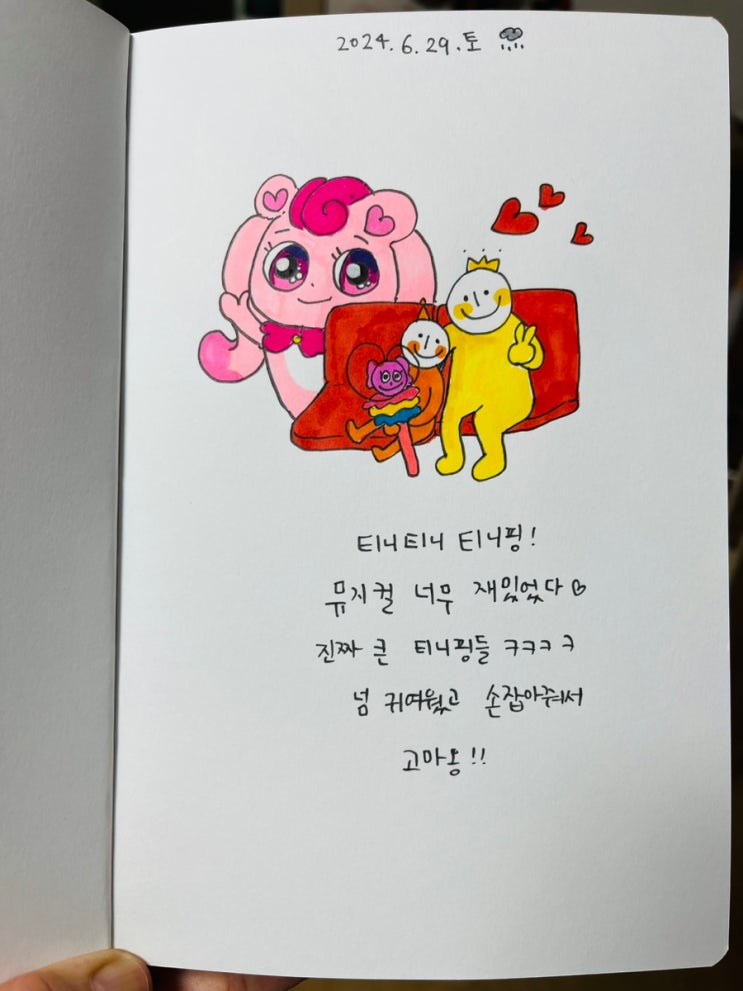 2024. 6. 29. 토
티니티니 티니핑!
뮤지컬 너무 재밌었다♡
진짜 큰 티니핑들 ㅋㅋㅋㅋ
넘 귀여웠고 손잡아줘서
고마옹!!